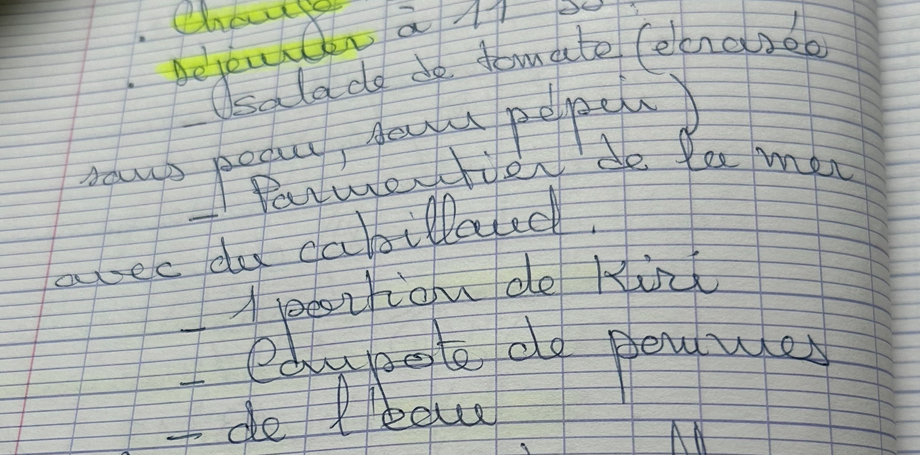 . Change
. Déjeuner à 11
- salade de tomate (écrasée
sans peau, sans pépin)
- 1 Parmentier de la mer
avec du cabillaud.
- 1 portion de Kiri
- Compote de pommes
- de l'eau